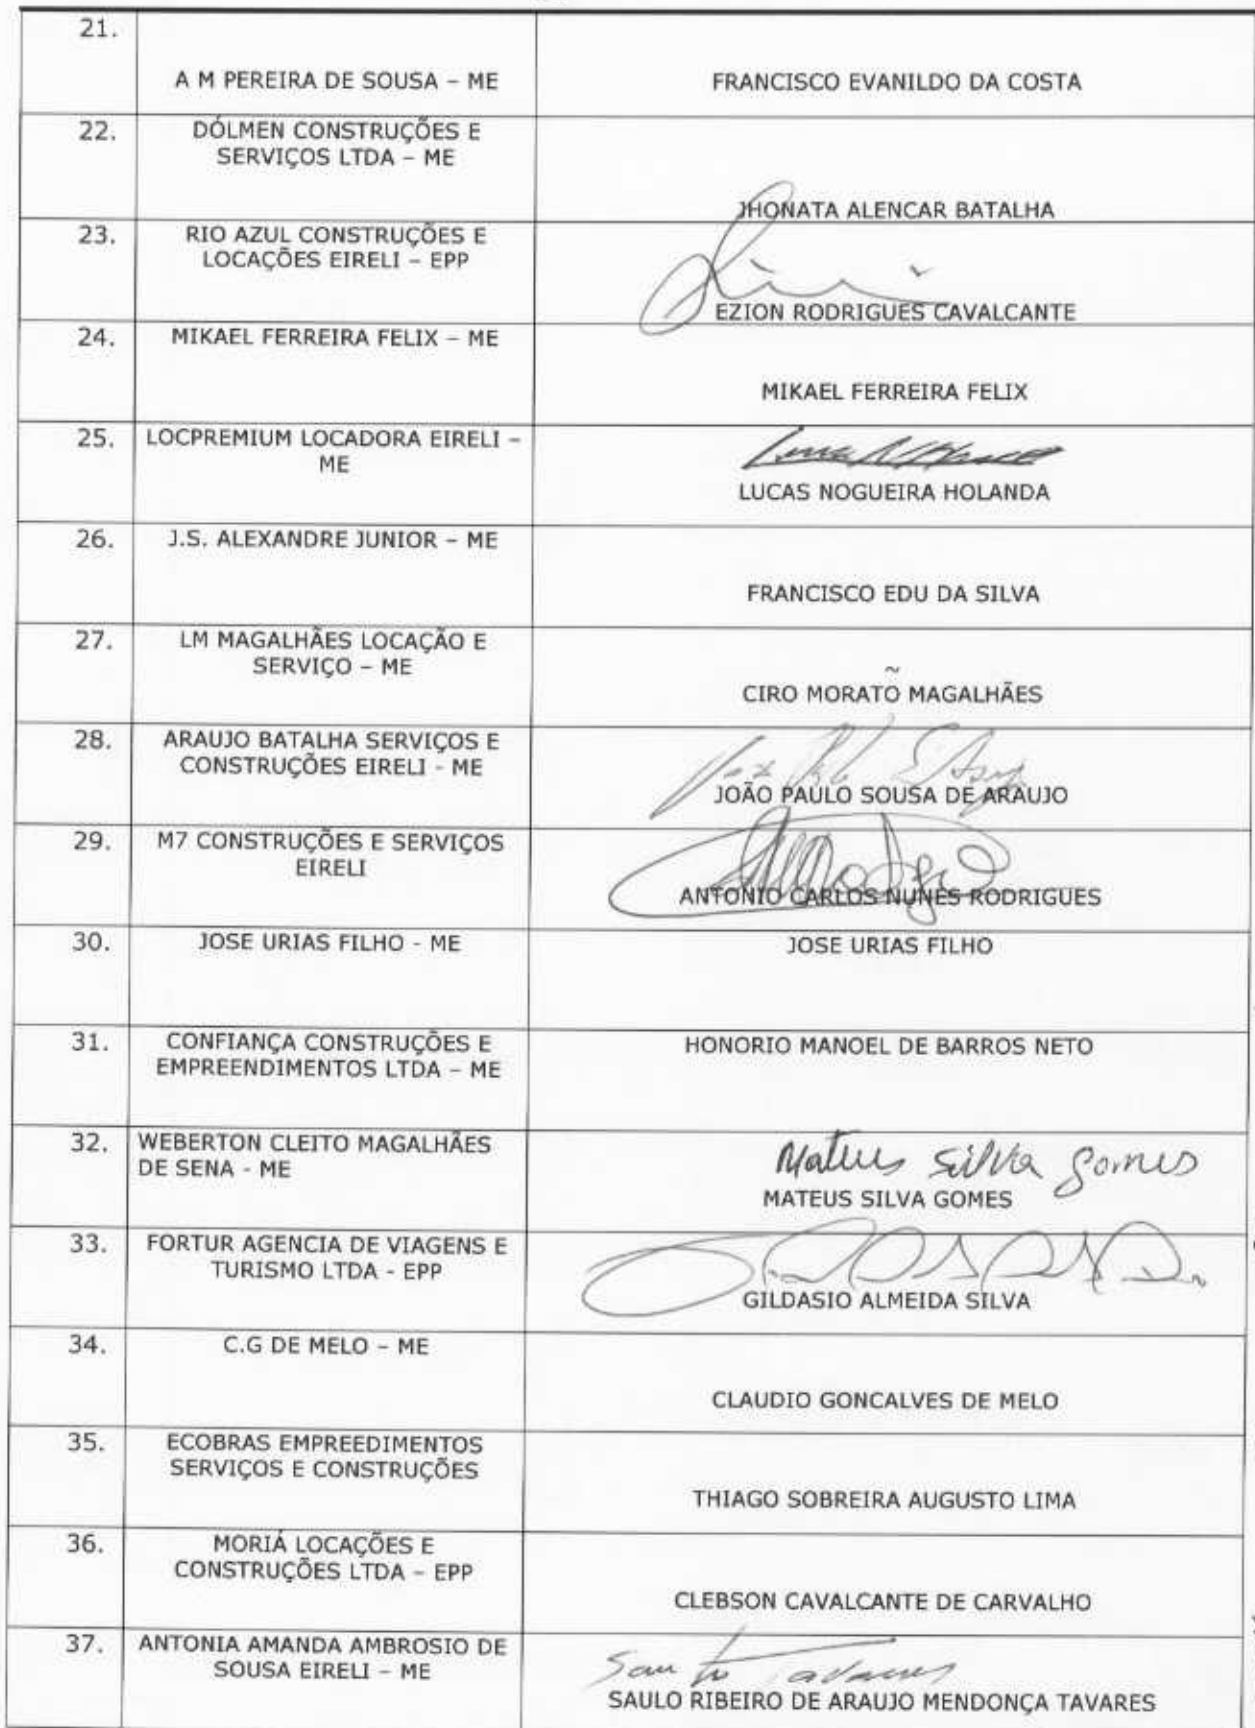 21.
A M PEREIRA DE SOUSA – ME
FRANCISCO EVANILDO DA COSTA
22.
DÓLMEN CONSTRUÇÕES E
SERVIÇOS LTDA – ME
JHONATA ALENCAR BATALHA
23.
RIO AZUL CONSTRUÇÕES E
LOCAÇÕES EIRELI – EPP
EZION RODRIGUES CAVALCANTE
24.
MIKAEL FERREIRA FELIX – ME
MIKAEL FERREIRA FELIX
25.
LOCPREMIUM LOCADORA EIRELI –
ME
LUCAS NOGUEIRA HOLANDA
26.
J.S. ALEXANDRE JUNIOR – ME
FRANCISCO EDU DA SILVA
27.
LM MAGALHÃES LOCAÇÃO E
SERVIÇO – ME
CIRO MORATÕ MAGALHÃES
28.
ARAUJO BATALHA SERVIÇOS E
CONSTRUÇÕES EIRELI - ME
JOÃO PAULO SOUSA DE ARAUJO
29.
M7 CONSTRUÇÕES E SERVIÇOS
EIRELI
ANTONIO CARLOS NUNES RODRIGUES
30.
JOSE URIAS FILHO - ME
JOSE URIAS FILHO
31.
CONFIANÇA CONSTRUÇÕES E
EMPREENDIMENTOS LTDA – ME
HONORIO MANOEL DE BARROS NETO
32.
WEBERTON CLEITO MAGALHÃES
DE SENA - ME
Mateus Silva Gomes
MATEUS SILVA GOMES
33.
FORTUR AGENCIA DE VIAGENS E
TURISMO LTDA - EPP
GILDASIO ALMEIDA SILVA
34.
C.G DE MELO – ME
CLAUDIO GONCALVES DE MELO
35.
ECOBRAS EMPREEDIMENTOS
SERVIÇOS E CONSTRUÇÕES
THIAGO SOBREIRA AUGUSTO LIMA
36.
MORIÁ LOCAÇÕES E
CONSTRUÇÕES LTDA – EPP
CLEBSON CAVALCANTE DE CARVALHO
37.
ANTONIA AMANDA AMBROSIO DE
SOUSA EIRELI – ME
Tavares
SAULO RIBEIRO DE ARAUJO MENDONÇA TAVARES